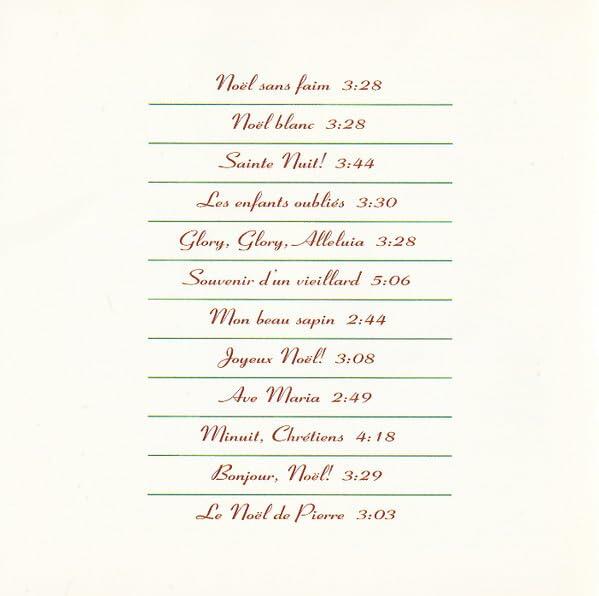 Noël sans faim 3:28
Noël blanc 3:28
Sainte Nuit! 3:44
Les enfants oubliés 3:30
Glory, Glory, Alleluia 3:28
Souvenir d'un vieillard 5:06
Mon beau sapin 2:44
Joyeux Noël! 3:08
Ave Maria 2:49
Minuit, Chrétiens 4:18
Bonjour, Noël! 3:29
Le Noël de Pierre 3:03